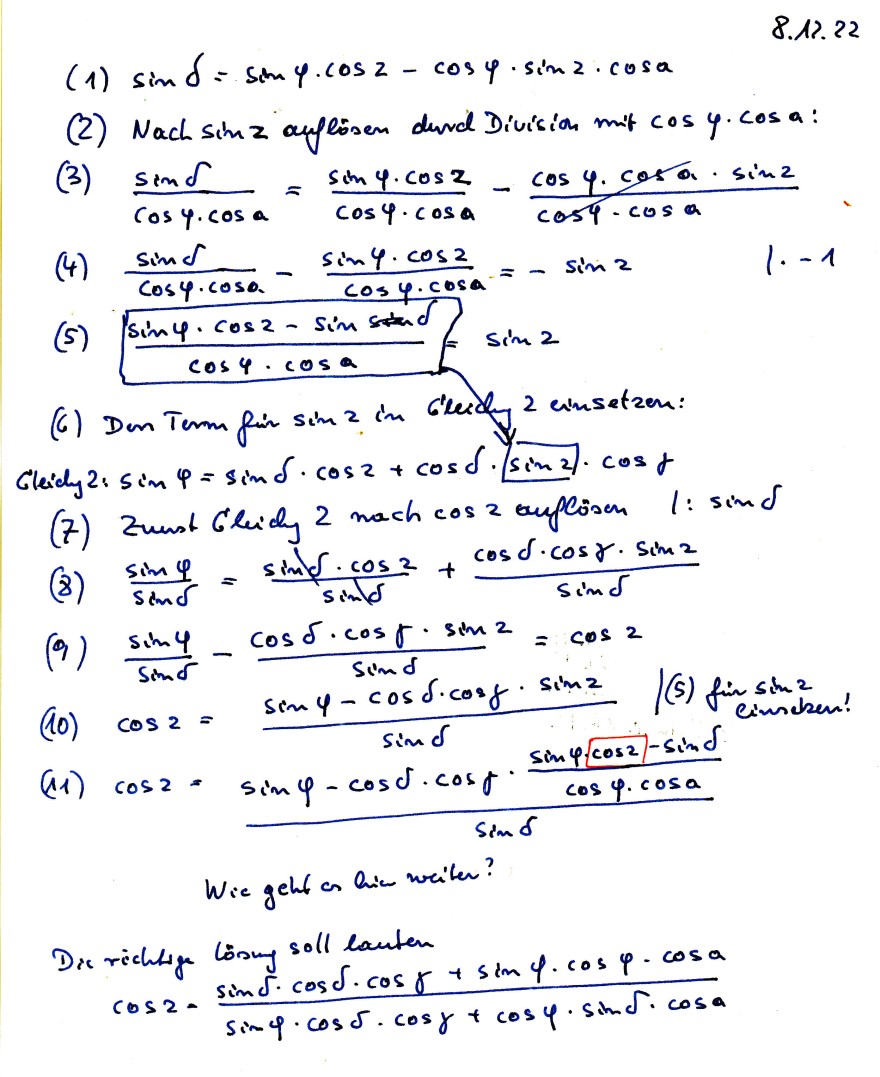 8.12.22
(1) sin δ = sin φ · cos z − cos φ · sin z · cos a
(2) Nach sin z auflösen durch Division mit cos φ · cos a :
(3) sin δ / (cos φ · cos a) = (sin φ · cos z) / (cos φ · cos a) − (cos φ · cos a · sin z) / (cos φ · cos a)
(4) sin δ / (cos φ · cos a) − (sin φ · cos z) / (cos φ · cos a) = − sin z |· −1
(5) (sin φ · cos z − sin δ) / (cos φ · cos a) = sin z
(6) Den Term für sin z in Gleichg 2 einsetzen:
Gleichg 2: sin φ = sin δ · cos z + cos δ · sin z · cos γ
(7) Zuerst Gleichg 2 nach cos z auflösen |: sin δ
(8) sin φ / sin δ = (sin δ · cos z) / sin δ + (cos δ · cos γ · sin z) / sin δ
(9) sin φ / sin δ − (cos δ · cos γ · sin z) / sin δ = cos z
(10) cos z = (sin φ − cos δ · cos γ · sin z) / sin δ |(5) für sin z einsetzen!
(11) cos z = (sin φ − cos δ · cos γ · (sin φ · cos z − sin δ) / (cos φ · cos a)) / sin δ
Wie geht es hier weiter?
Die richtige Lösung soll lauten
cos z = (sin δ · cos δ · cos γ + sin φ · cos φ · cos a) / (sin φ · cos δ · cos γ + cos φ · sin δ · cos a)